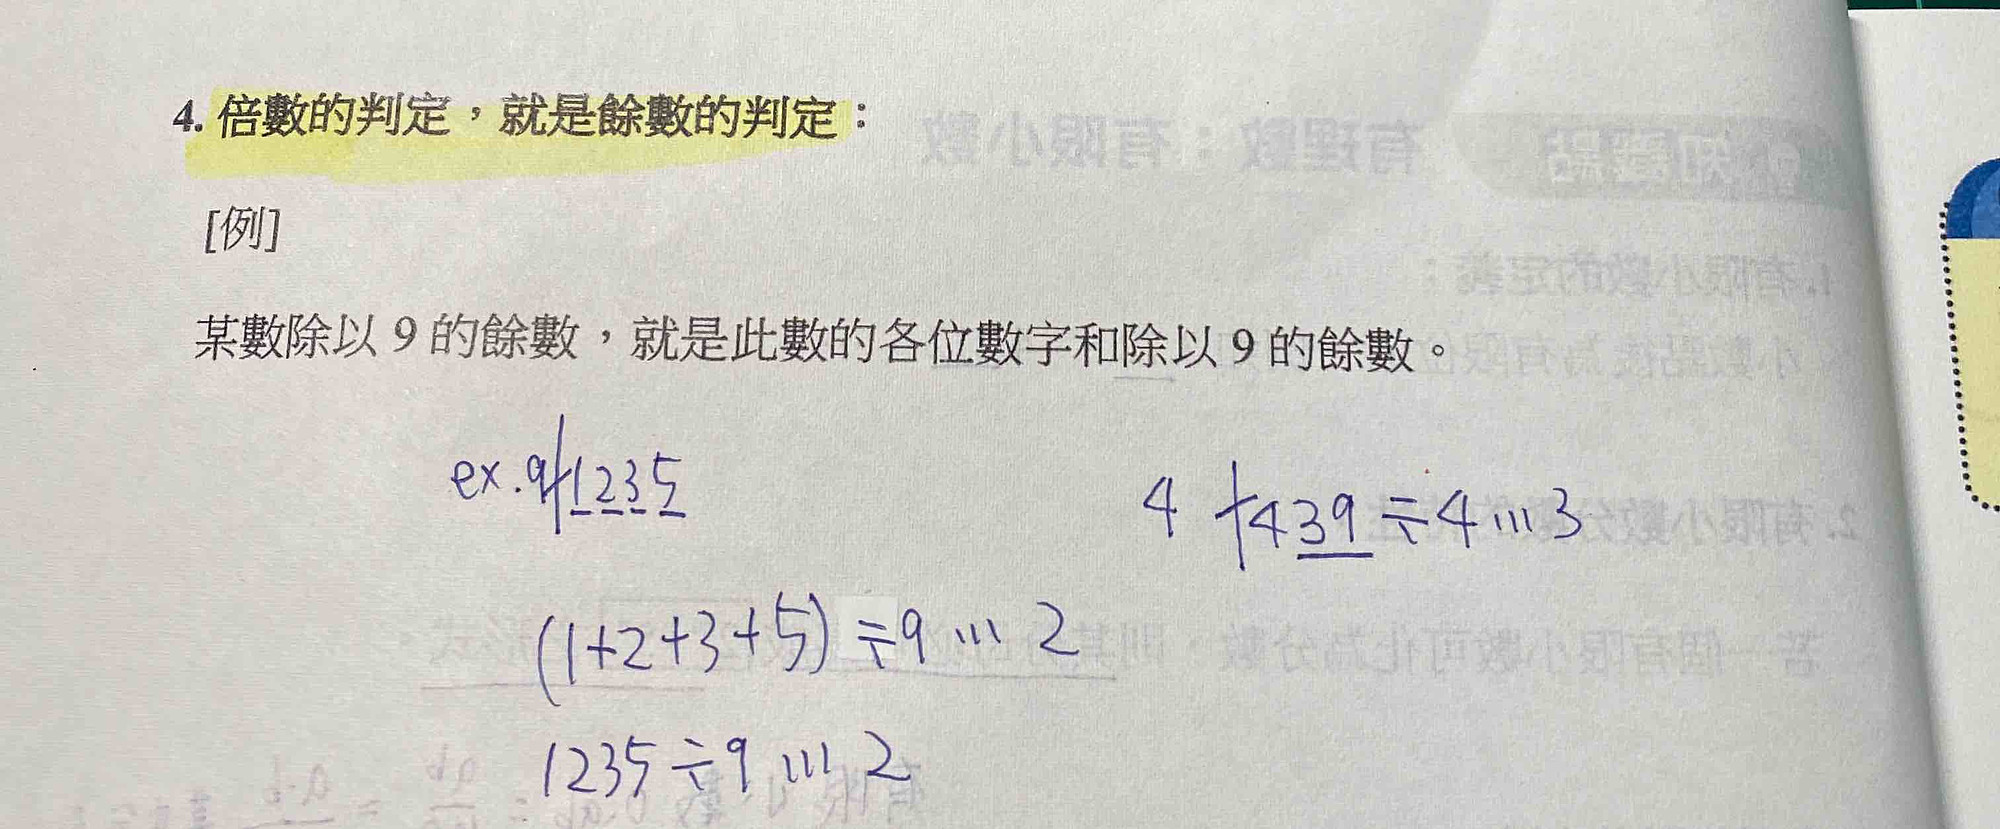 4. 倍數的判定，就是餘數的判定：
[例]
某數除以 9 的餘數，就是此數的各位數字和除以 9 的餘數。
ex. 9∤1235
4 ∤439÷4…3
(1+2+3+5)÷9…2
1235÷9…2